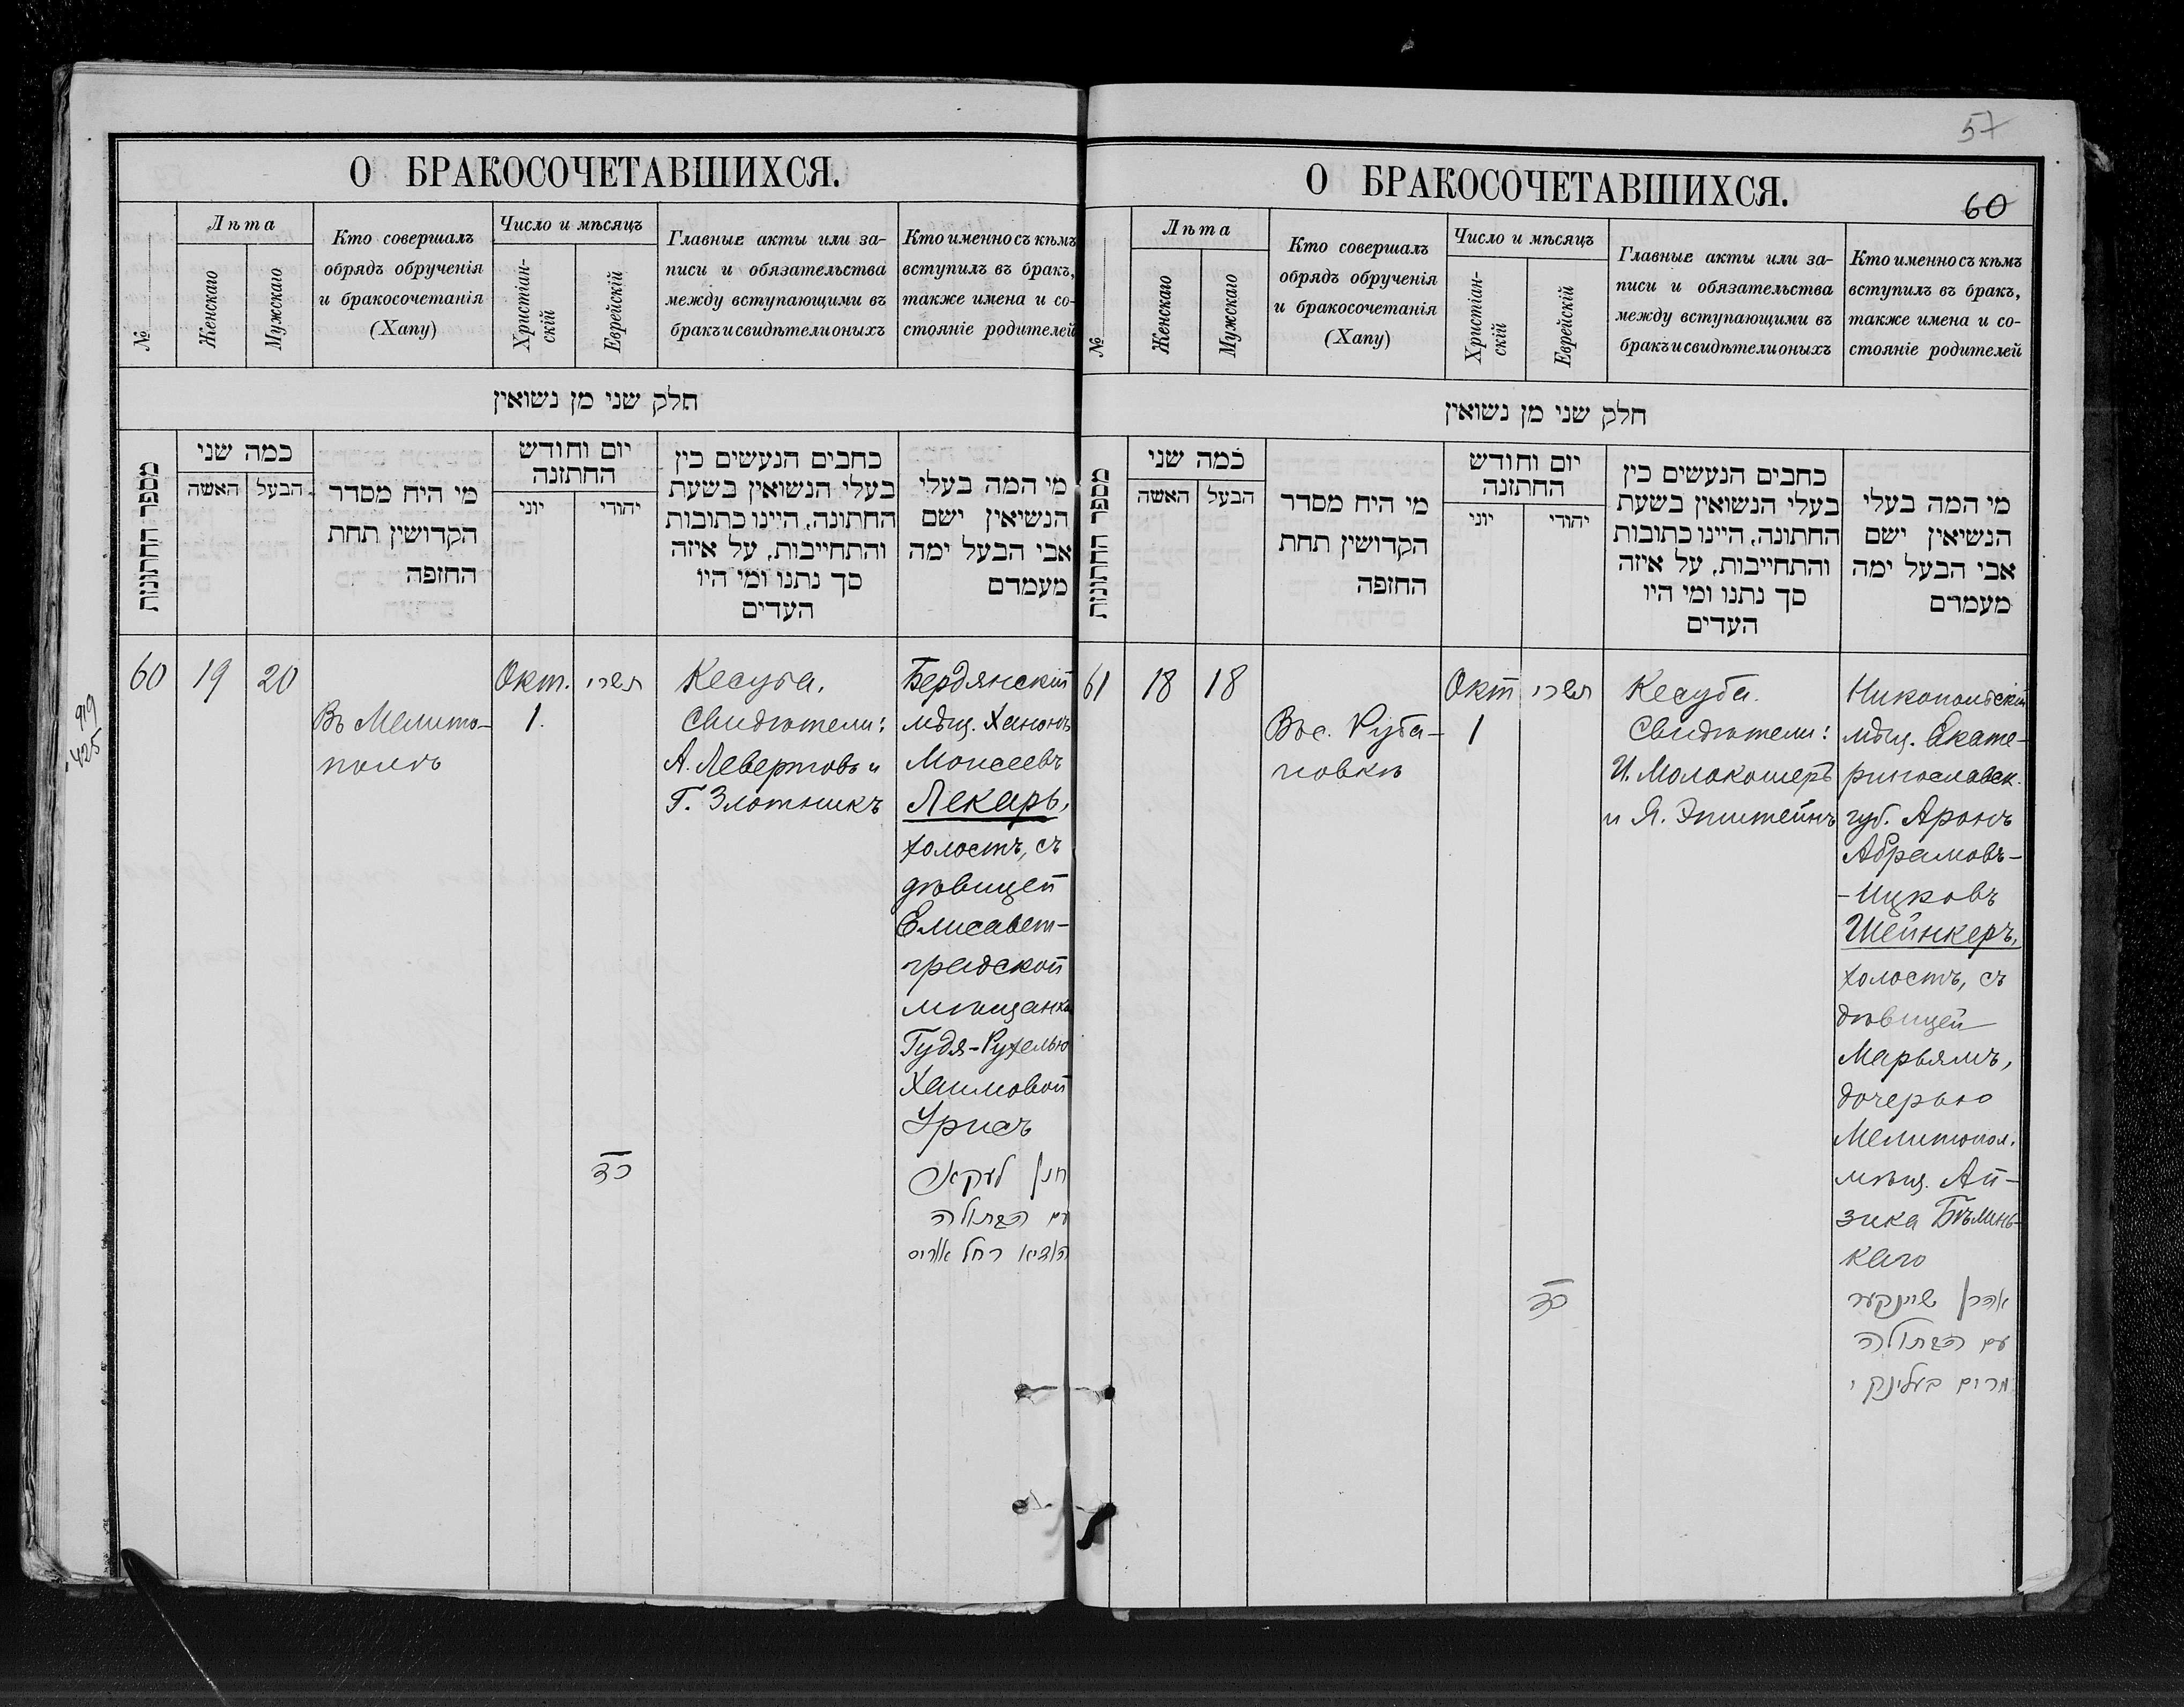 57
60
О БРАКОСОЧЕТАВШИХСЯ.
№
Лѣта
Женскаго
Мужскаго
Кто совершалъ
обрядъ обрученія
и бракосочетанія
(Хапу)
Число и мѣсяцъ
Христіан-
скій
Еврейскій
Главные акты или за-
писи и обязательства
между вступающими въ
бракъ и свидѣтели оныхъ
Кто именно съ кѣмъ
вступилъ въ бракъ,
также имена и со-
стояніе родителей
חלק שני מן נשואין
מספר החתונות
כמה שני
האשה
הבעל
מי היח מסדר
הקדושין תחת
החזפה
יום וחודש
החתזנה
יוני
יהודי
כחבים הנעשים כין
בעלי הנשואין בשעת
החתונה, היינו כתובות
והתחייבות, על איזה
סך נתנו ומי היו
העדים
מי המה בעלי
הנשיאין ישם
אבי הבעל ימה
מעמדם
919
425
60
19
20
Въ Мелито-
полѣ
Окт.
1.
תשרי
כד
Кесуба.
Свидѣтели:
А. Левертовъ и
Г. Злотникъ
Бердянскій
мѣщ. Ханонъ
Моисеевъ
Лекарь,
холостъ, съ
дѣвицей
Елисавет-
градской
мѣщанкой
Гудя-Рухелью
Хаимовой
Урисъ
חנן לעקאר
עם הבתולה
האדיא רחל אוריס
О БРАКОСОЧЕТАВШИХСЯ.
№
Лѣта
Женскаго
Мужскаго
Кто совершалъ
обрядъ обрученія
и бракосочетанія
(Хапу)
Число и мѣсяцъ
Христіан-
скій
Еврейскій
Главные акты или за-
писи и обязательства
между вступающими въ
бракъ и свидѣтели оныхъ
Кто именно съ кѣмъ
вступилъ въ бракъ,
также имена и со-
стояніе родителей
חלק שני מן נשואין
מספר החתונות
כמה שני
האשה
הבעל
מי היח מסדר
הקדושין תחת
החזפה
יום וחודש
החתזנה
יוני
יהודי
כחבים הנעשים כין
בעלי הנשואין בשעת
החתונה, היינו כתובות
והתחייבות, על איזה
סך נתנו ומי היו
העדים
מי המה בעלי
הנשיאין ישם
אבי הבעל ימה
מעמדם
61
18
18
Въ с. Руба-
новкѣ
Окт
1
תשרי
כד
Кесуба.
Свидѣтели:
И. Молокошеръ
и Я. Эпштейнъ
Никопольскій
мѣщ. Екате-
ринославск.
губ. Аронъ
Абрамовъ-
-Ицковъ
Шейнкеръ,
холостъ, съ
дѣвицей
Марьямъ,
дочерью
Мелитопол.
мѣщ. Ай-
зика Бѣлинь-
каго
אהרן שיינקער
עם הבתולה
מרים בעלינקי